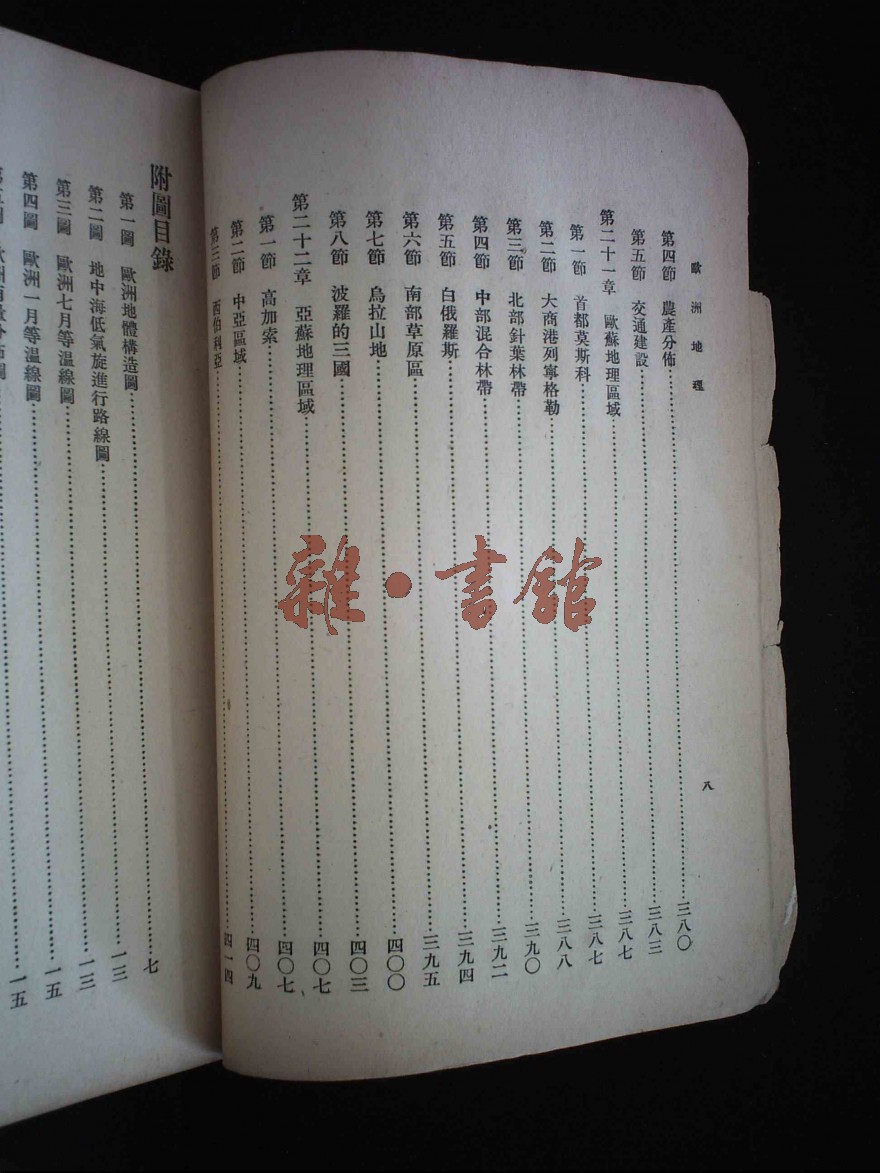 歐洲地理
八
第四節 農產分佈 三八〇
第五節 交通建設 三八三
第二十一章 歐蘇地理區域 三八七
第一節 首都莫斯科 三八七
第二節 大商港列寧格勒 三八八
第三節 北部針葉林帶 三九〇
第四節 中部混合林帶 三九二
第五節 白俄羅斯 三九四
第六節 南部草原區 三九五
第七節 烏拉山地 四〇〇
第八節 波羅的三國 四〇三
第二十二章 亞蘇地理區域 四〇七
第一節 高加索 四〇七
第二節 中亞區域 四〇九
第三節 西伯利亞 四一四
附圖目錄
第一圖 歐洲地體構造圖 七
第二圖 地中海低氣旋進行路線圖 一三
第三圖 歐洲七月等溫線圖 一三
第四圖 歐洲一月等溫線圖 一五
一五
雜·書館